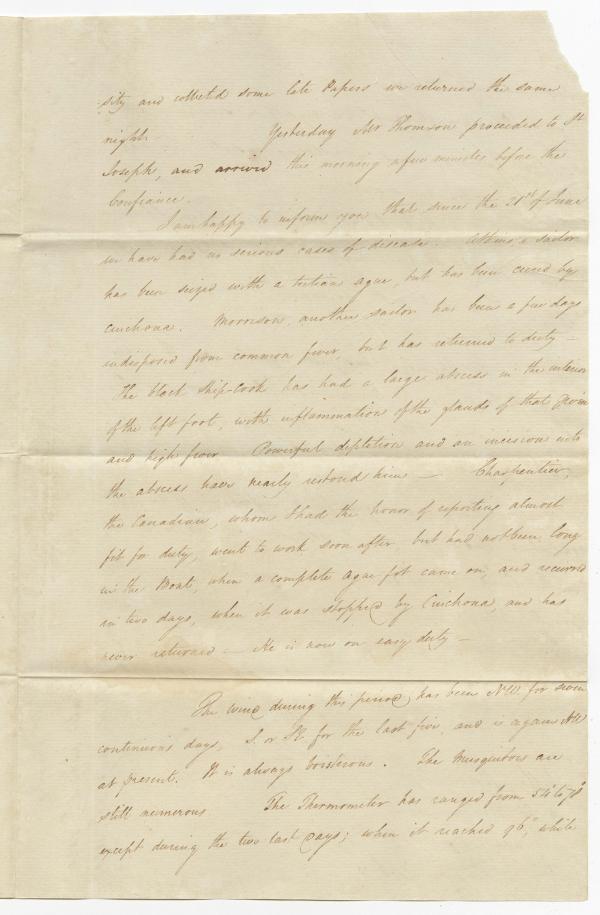 sity and collected some late Papers we returned the same
night. Yesterday Mr Thomson proceeded to St
Joseph, and arrived this morning a few minutes before the
Confiance.
I am happy to inform you that since the 21st of June
we have had no serious cases of disease. Atkins a sailor
has been seized with a tertian ague, but has been cured by
cinchona. Morrison, another sailor has been a few days
indisposed from common fever, but has returned to duty —
The black ship-cook has had a large abscess in the interior
of the left foot, with inflammation of the glands of that groin
and high fever Powerful depletion and an incision into
the abscess have nearly restored him — Charpentier,
the Canadian, whom I had the honor of reporting almost
fit for duty, went to work soon after but had not been long
in the Boat, when a complete ague fit came on, and recurred
in two days, when it was stopped by Cinchona, and has
never returned — He is now on easy duty —
The wind during this period, has been NW for seven
continuous days, S. or SE for the last five, and is again NW
at present. It is always boisterous. The Musquitoes are
still numerous The Thermometer has ranged from 54° to 78°
except during the two last days; when it reached 96°, while